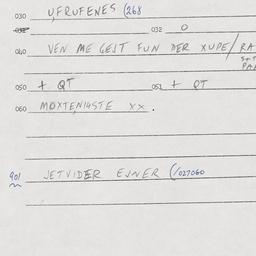 030 U,FRUFENES (268
032 032 O
040 VEN ME GEJT FUN DER XUPE/ RA
050 + QT 051 + QT
060 MOXTENIGSTE XX.
901 JETVIDER EJNER (/027060